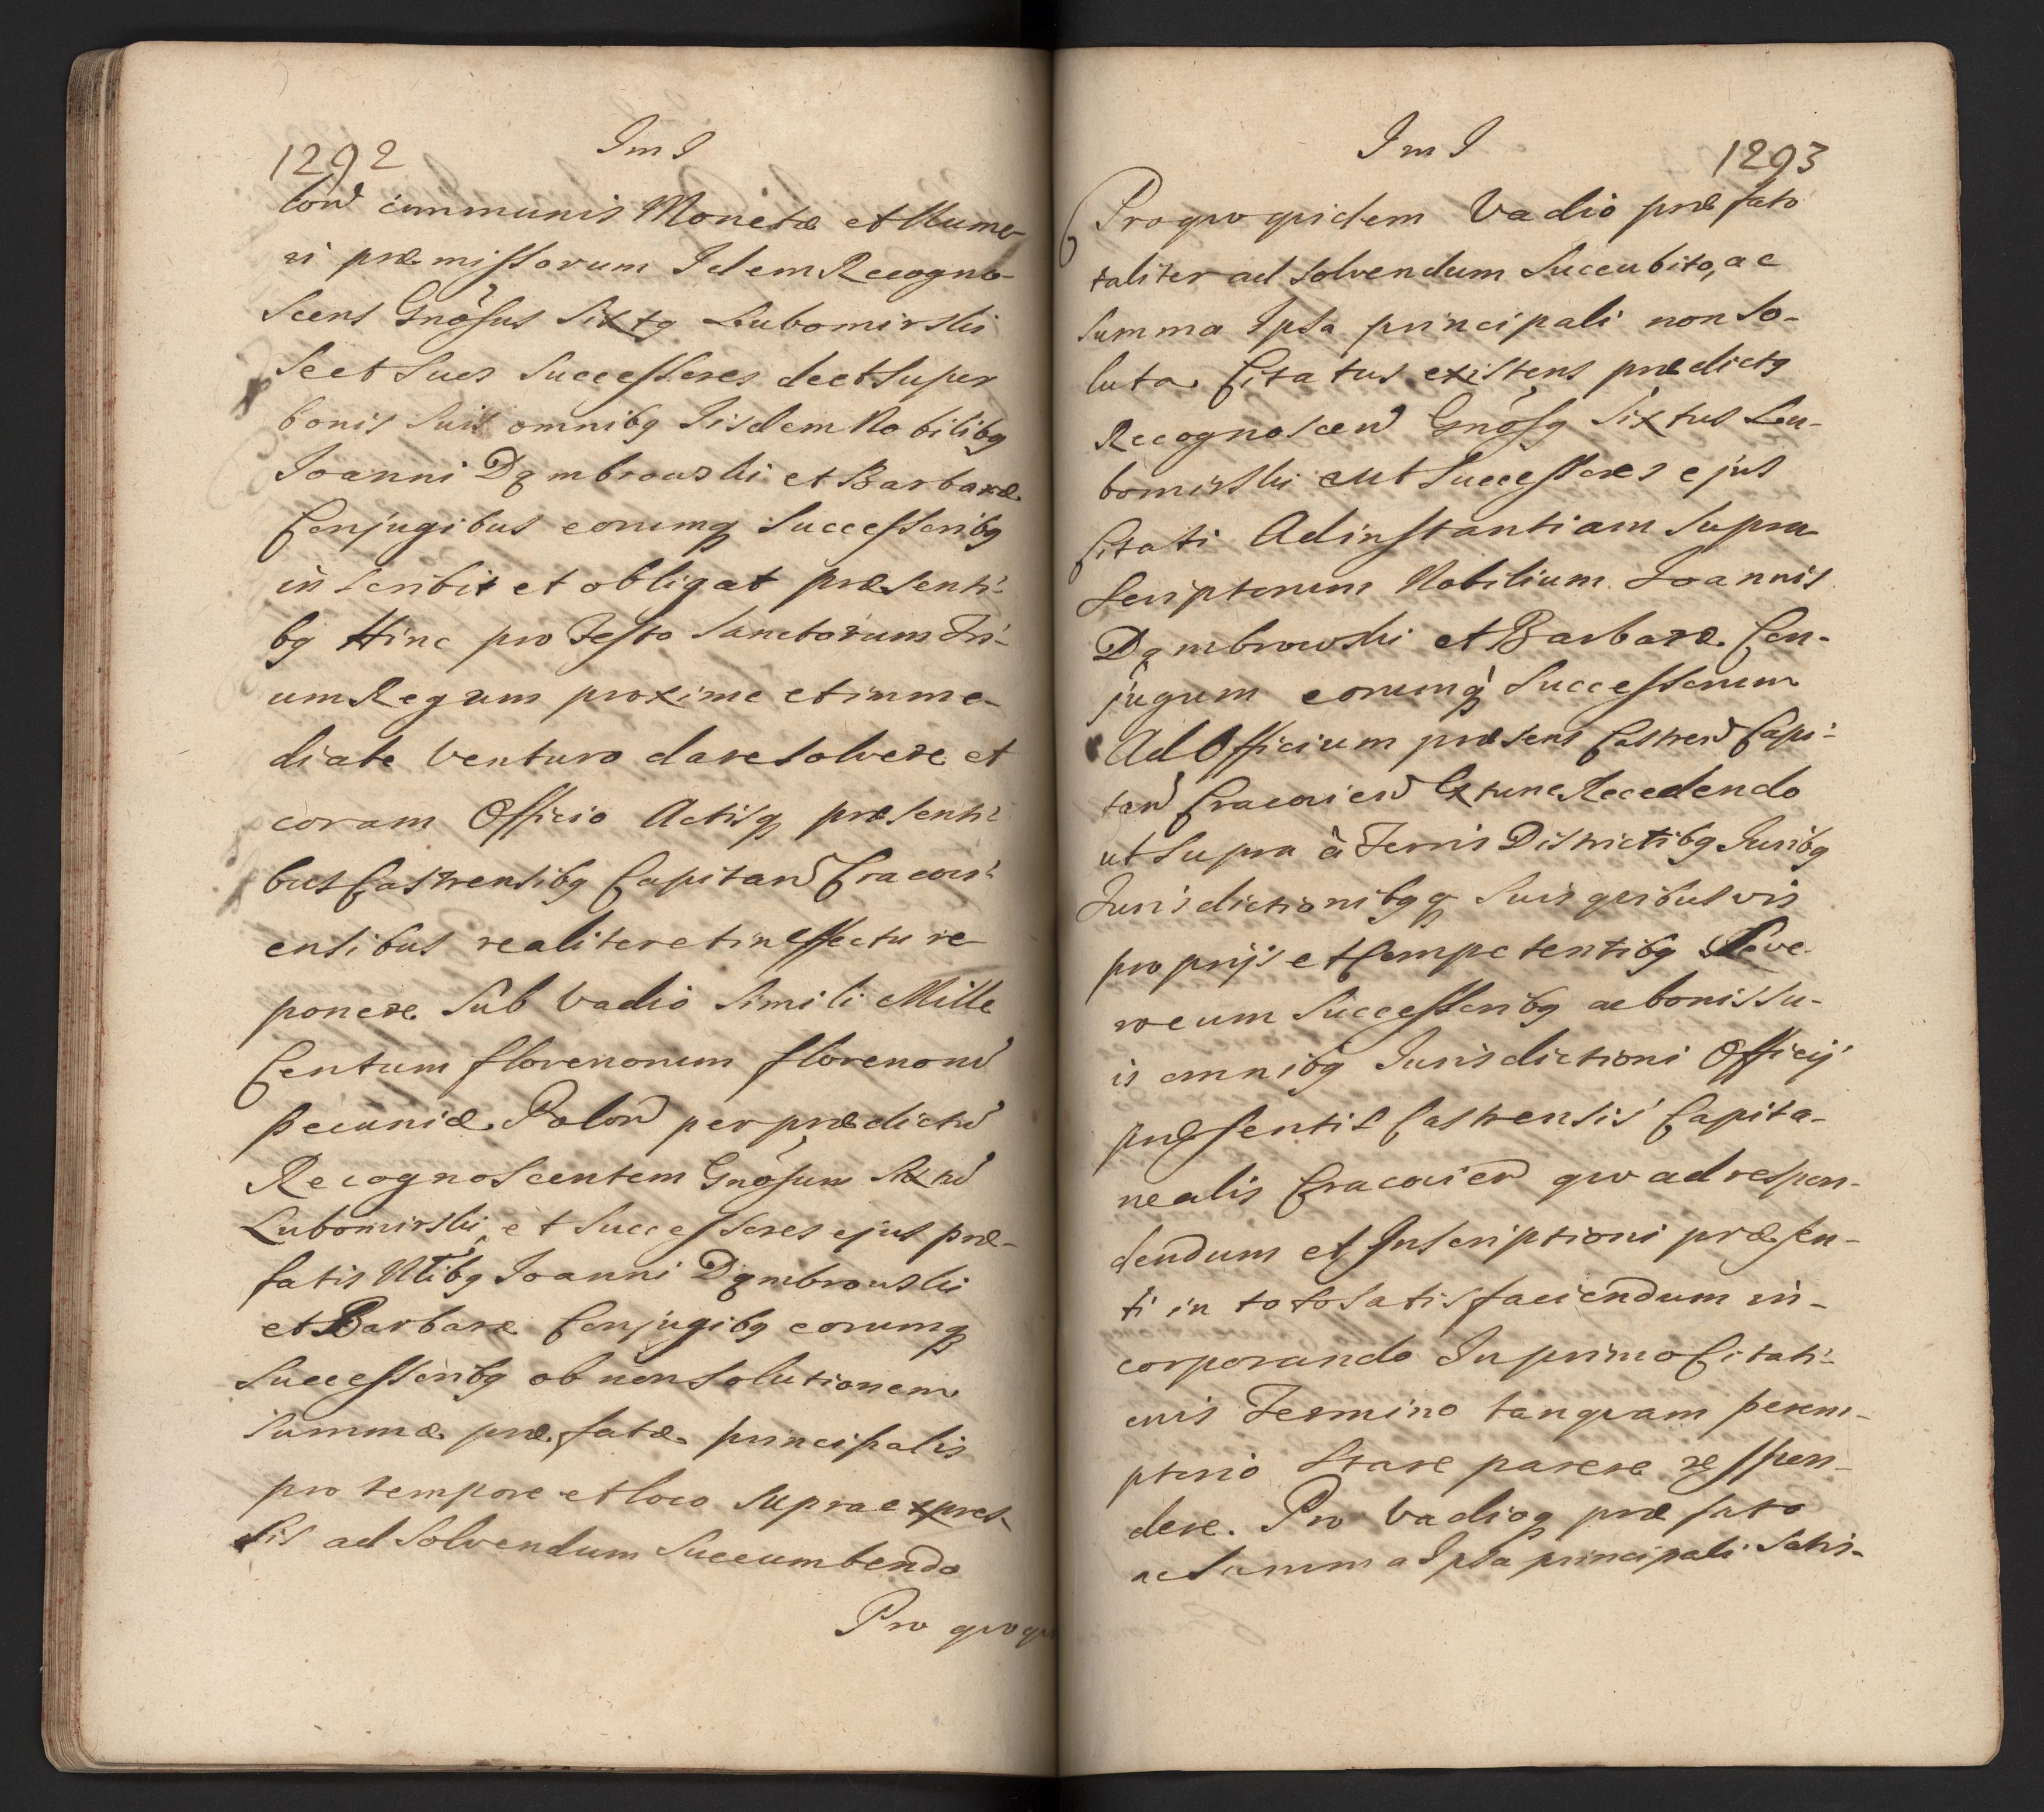 1292
Im I
lon̄ communis Monetæ et Nume-
ri præmissorum Idem Recogno-
scens Gnōsus Sixtq Lubomirski
Se et Suos Successores de et Super
bonis Suis omnibq Iisdem Nobilibq
Joanni Dąmbrowski et Barbaræ
Conjugibus eorumq Successoribq
inscribit et obligat præsenti-
bq Hinc pro Festo Sanctorum Tri-
um Regum proxime et imme-
diate venturo dare solvere et
coram Officio Actisq præsenti-
bus Castrensibq Capitan̄ Cracovi-
ensibus realiter et in effectu re-
ponere Sub Vadio Simili Mille
Centum florenorum florenorū
pecuniæ Polon̄ per prædictū
Recognoscentem Gnōsum Sixtū
Lubomirski et Successores ejus præ-
fatis Nlibq Joanni Dąmbrowski
et Barbaræ Conjugibq eorumq
Successoribq ob non Solutionem
Summæ præfatæ principalis
pro tempore et loco Supra expres-
sis ad Solvendum Succumbendo
Pro quo qui
Im I
1293
Pro quo quidem Vadio præfato
taliter ad Solvendum Succubito, ac
Summa Ipsa principali non So-
luta Citatus existens prædictq
Recognoscen̄ Gnōsq Sixtus Lu-
bomirski aut Successores ejus
Citati Ad instantiam Supra
Scriptorum Nobilium Joannis
Dąmbrowski et Barbaræ Con-
jugum eorumq Successorum
Ad Officium præsens Castren̄ Capi-
tan̄ Cracovien̄ Extunc Recedendo
ut Supra à Terris Districtibq Juribq
Jurisdictionibqq Suis quibusvis
proprijs et Competentibq Seve
ro cum Successoribq ac bonis Su-
is omnibq Jurisdictioni Officij
præsentis Castrensis Capita-
nealis Cracovien̄ quo ad respon-
dendum et Inscriptioni præsen-
ti in toto Satisfaciendum in-
corporando In primo Citati-
onis Termino tanquam perem-
ptorio Stare parere respon-
dere. Pro Vadioq præfato
ac Summa Ipsa principali Satis-